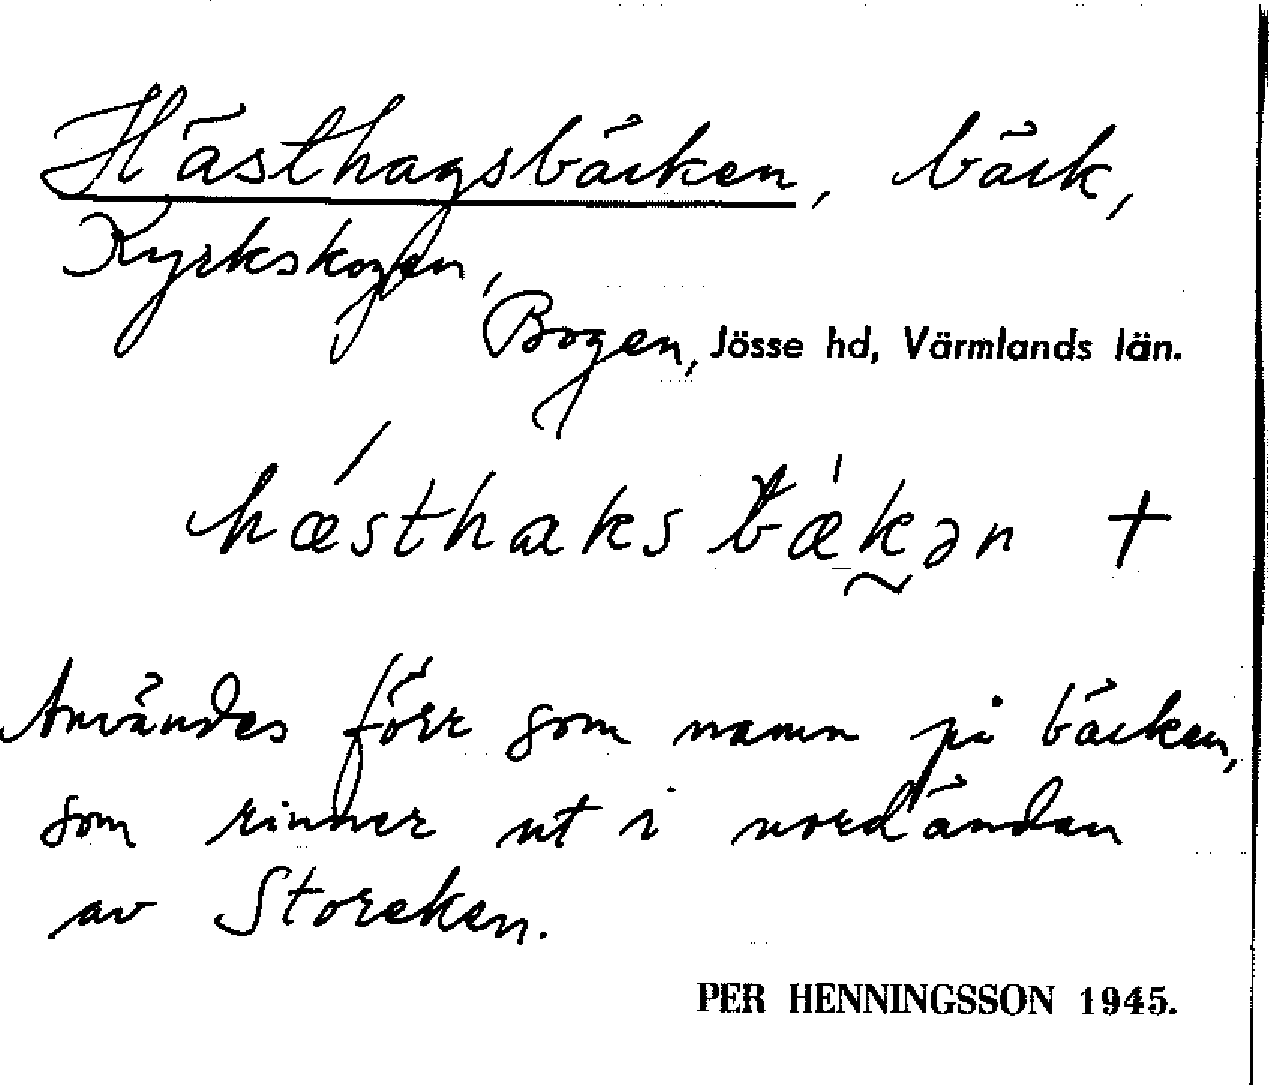 Hästhagsbäcken, bäck,
Kyrkskogen,
Bogen, Jösse hd, Värmlands län.
hǽsthaks bæ̍k̰ən †
Användes förr som namn på bäcken,
som rinner ut i nordändan
av Storeken.
PER HENNINGSSON 1945.